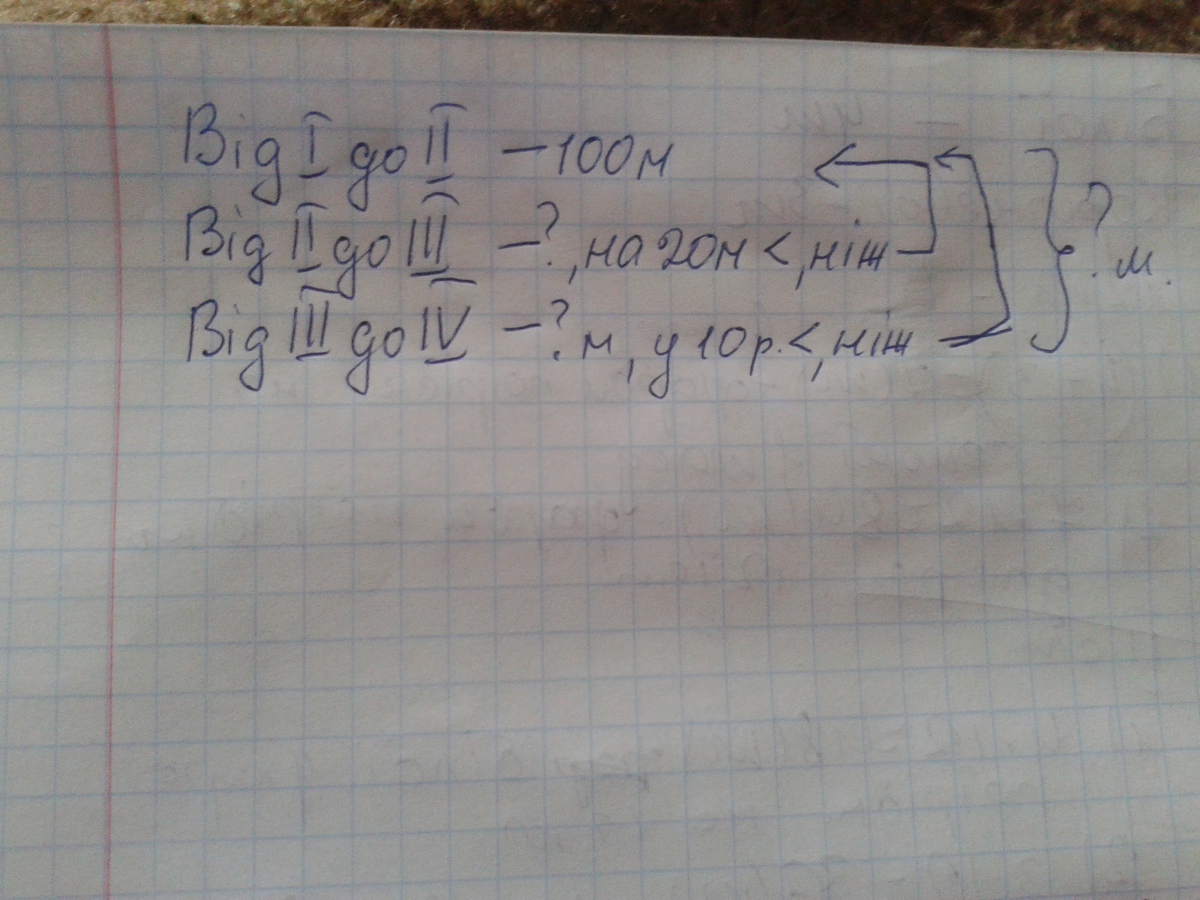 Від I до II – 100м
Від II до III – ?, на 20м <, ніж
Від III до IV – ? м, у 10 р. <, ніж
? м.